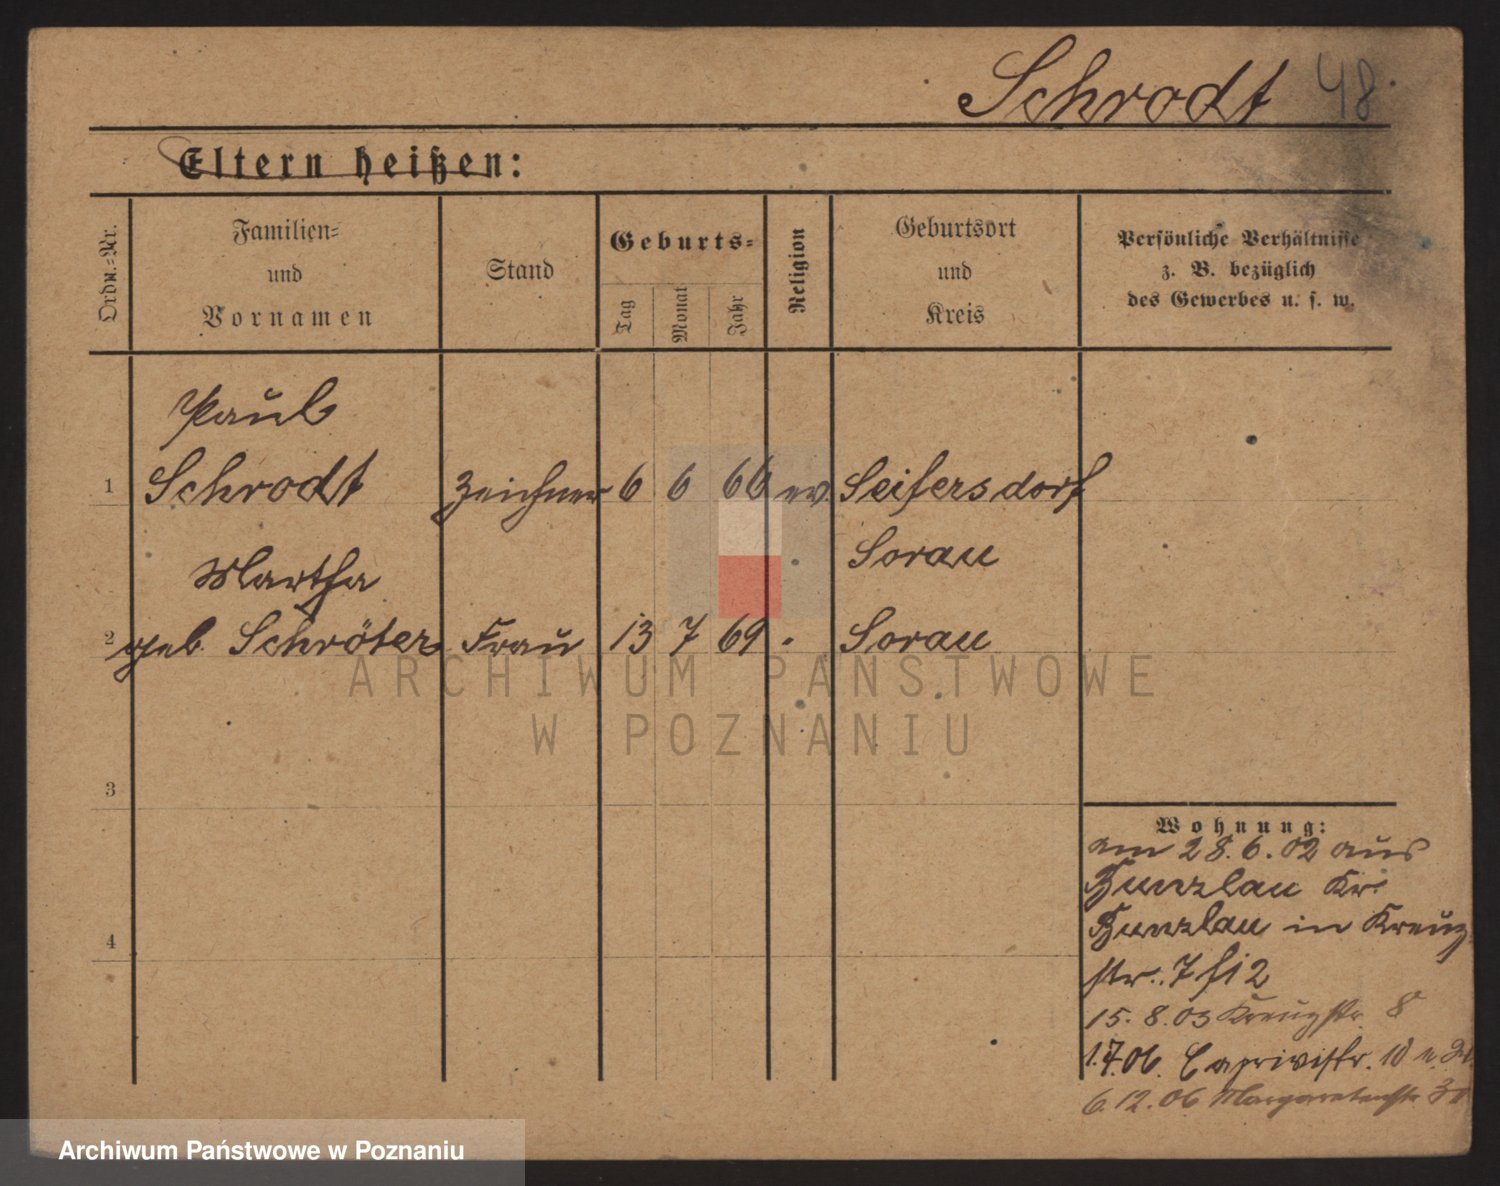 Schrodt 48
Eltern heißen:
Ordn.-Nr.
Familien-
und
Vornamen
Stand
Geburts-
Tag
Monat
Jahr
Religion
Geburtsort
und
Kreis
Persönliche Verhältnisse
z. B. bezüglich
des Gewerbes u. s. w.
Paul
1 Schrodt Zeichner 6 6 66 ev Seifersdorf
Sorau
Martha
2 geb. Schröter Frau 13 7 69 " Sorau
3
4
Wohnung:
am 28.6.02 aus
Bunzlau Kr.
Bunzlau in Kreuz
str. 7
15.8.03 Kreuzstr. 8
1.7.06. Caprivistr. 10
6.12.06 Margaretenstr
ARCHIWUM PAŃSTWOWE
W POZNANIU
Archiwum Państwowe w Poznaniu